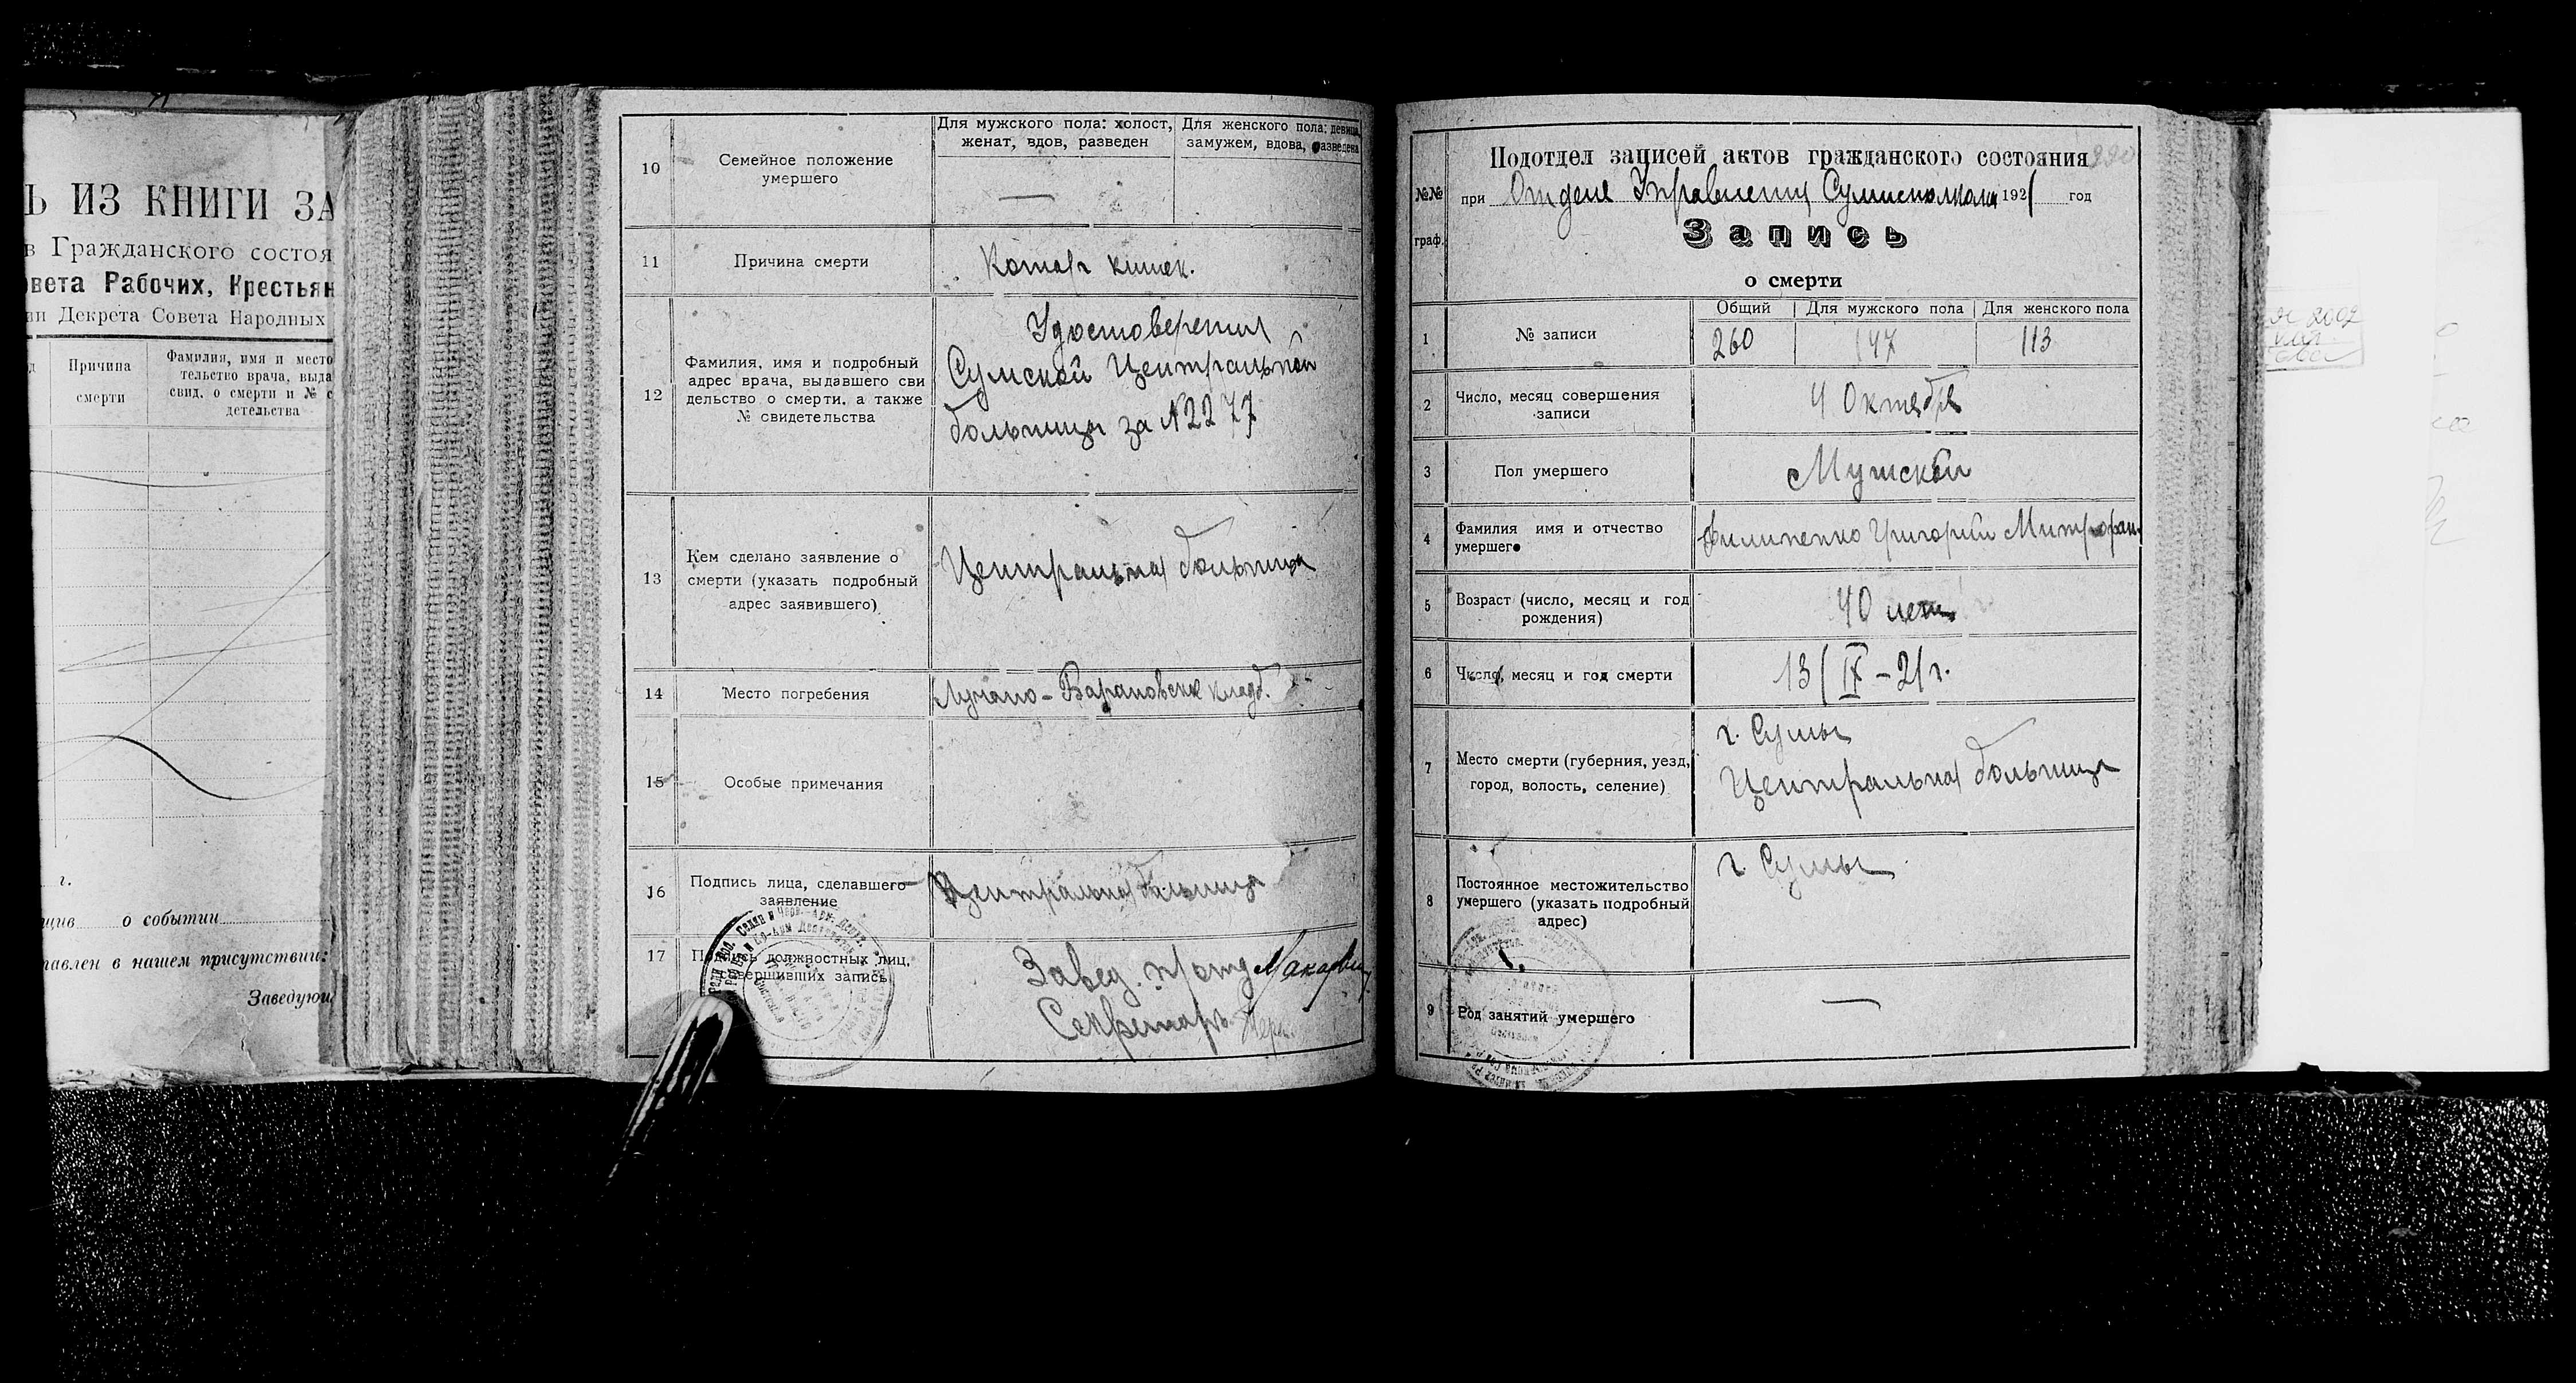 Ь ИЗ КНИГИ ЗА
в Гражданского состоя
овета Рабочих, Крестьян
ии Декрета Совета Народных
Причина
смерти
Фамилия, имя и место
тельство врача, выда
свид. о смерти и № с
детельства
г.
о событии
тавлен в нашем присутствии:
Заведую
10
Семейное положение
умершего
Для мужского пола: холост,
женат, вдов, разведен
Для женского пола: девица,
замужем, вдова, разведена
—
11
Причина смерти
Катар кишек.
12
Фамилия, имя и подробный
адрес врача, выдавшего сви
дельство о смерти, а также
№ свидетельства
Удостоверения
Сумской Центральной
больницы за №2277
13
Кем сделано заявление о
смерти (указать подробный
адрес заявившего)
Центральная больница
14
Место погребения
Лучано-Барановск кладб.
15
Особые примечания
16
Подпись лица, сделавшего
заявление
Центральная больница
17
Подпись должностных лиц,
совершивших запись
Завед. п/отд
Секретарь
Подотдел записей актов гражданского состояния
№№
граф.
при Отделе Управления Сумисполкома 1921 год
Запись
о смерти
1
№ записи
Общий
Для мужского пола
Для женского пола
260
147
113
2
Число, месяц совершения
записи
4 Октября
3
Пол умершего
Мужской
4
Фамилия имя и отчество
умершего
Филипенко Григорий Митрофан.
5
Возраст (число, месяц и год
рождения)
40 лет
6
Число, месяц и год смерти
13/IX-21г.
7
Место смерти (губерния, уезд,
город, волость, селение)
г. Сумы
Центральная больница
8
Постоянное местожительство
умершего (указать подробный
адрес)
г. Сумы
9
Род занятий умершего
—